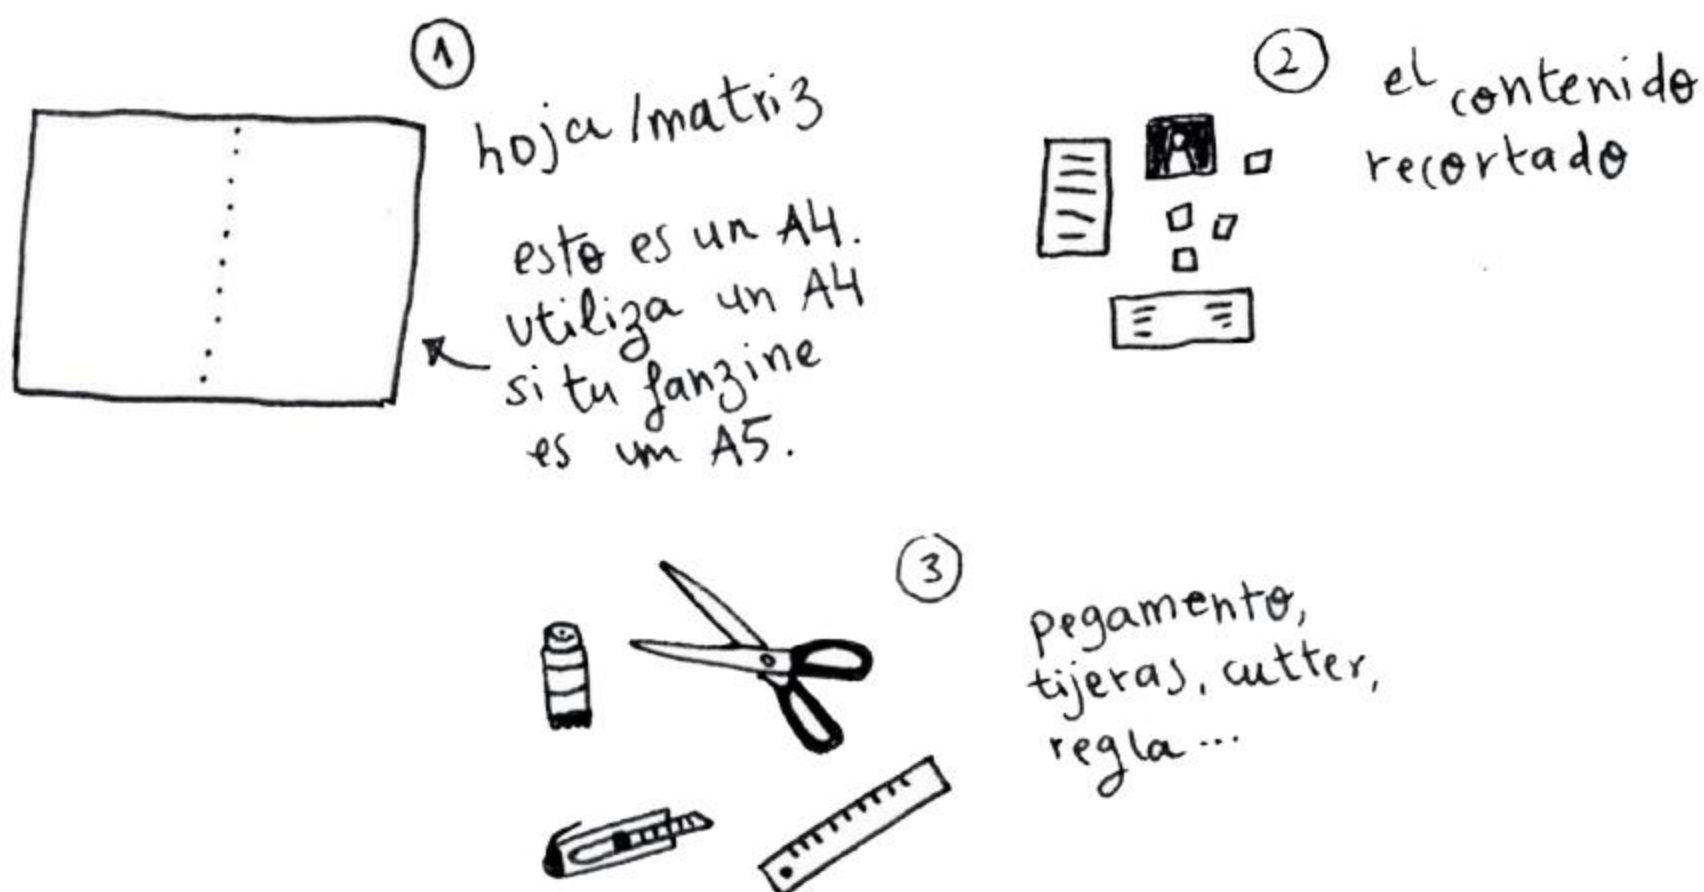 1
hoja/matriz
esto es un A4.
utiliza un A4
si tu fanzine
es um A5.
2
el contenido
recortado
3
pegamento,
tijeras, cutter,
regla...